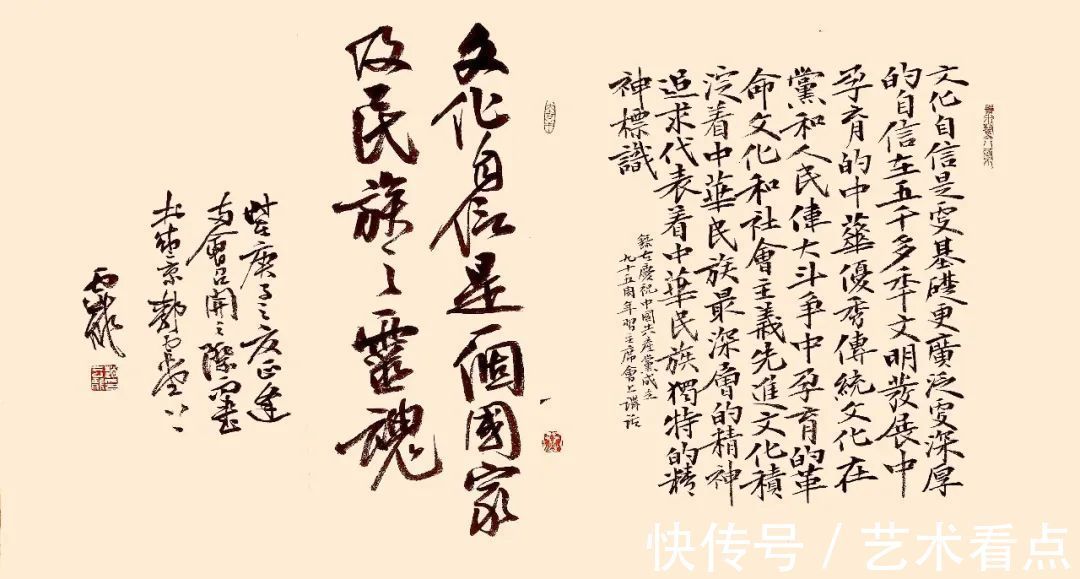 文化自信是更基礎更廣泛更深厚
的自信在五千多年文明發展中
孕育的中華優秀傳統文化在
黨和人民偉大斗爭中孕育的革
命文化和社會主義先進文化積
淀着中華民族最深層的精神
追求代表着中華民族獨特的精
神標識
錄在慶祝中國共產黨成立
九十五周年習主席會上講話
文化自信是一個國家
及民族之靈魂
歲庚子之夏正逢
两會召開之際書
於北京
快传号 / 艺术看点